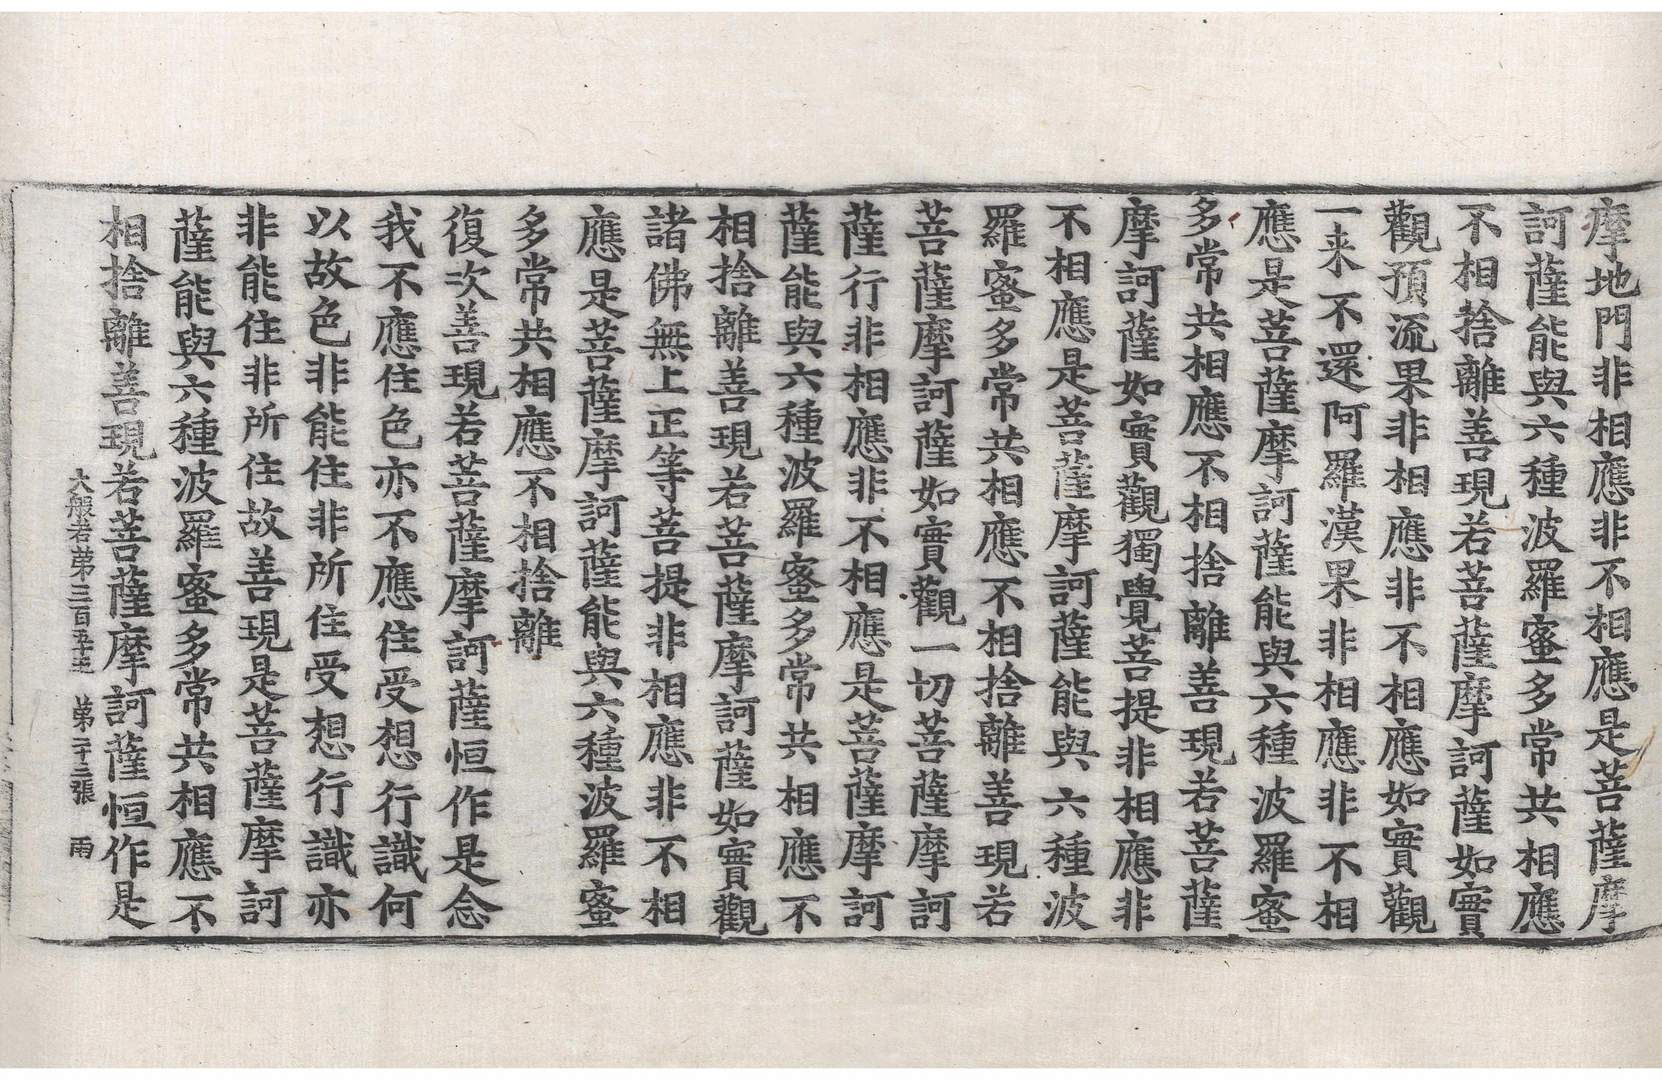 摩地門非相應非不相應是菩薩摩
訶薩能與六種波羅蜜多常共相應
不相捨離善現若菩薩摩訶薩如實
觀預流果非相應非不相應如實觀
一来不還阿羅漢果非相應非不相
應是菩薩摩訶薩能與六種波羅蜜
多常共相應不相捨離善現若菩薩
摩訶薩如實觀獨覺菩提非相應非
不相應是菩薩摩訶薩能與六種波
羅蜜多常共相應不相捨離善現若
菩薩摩訶薩如實觀一切菩薩摩訶
薩行非相應非不相應是菩薩摩訶
薩能與六種波羅蜜多常共相應不
相捨離善現若菩薩摩訶薩如實觀
諸佛無上正等菩提非相應非不相
應是菩薩摩訶薩能與六種波羅蜜
多常共相應不相捨離
復次善現若菩薩摩訶薩恒作是念
我不應住色亦不應住受想行識何
以故色非能住非所住受想行識亦
非能住非所住故善現是菩薩摩訶
薩能與六種波羅蜜多常共相應不
相捨離善現若菩薩摩訶薩恒作是
大般若第三百五十五 第二十二張 雨